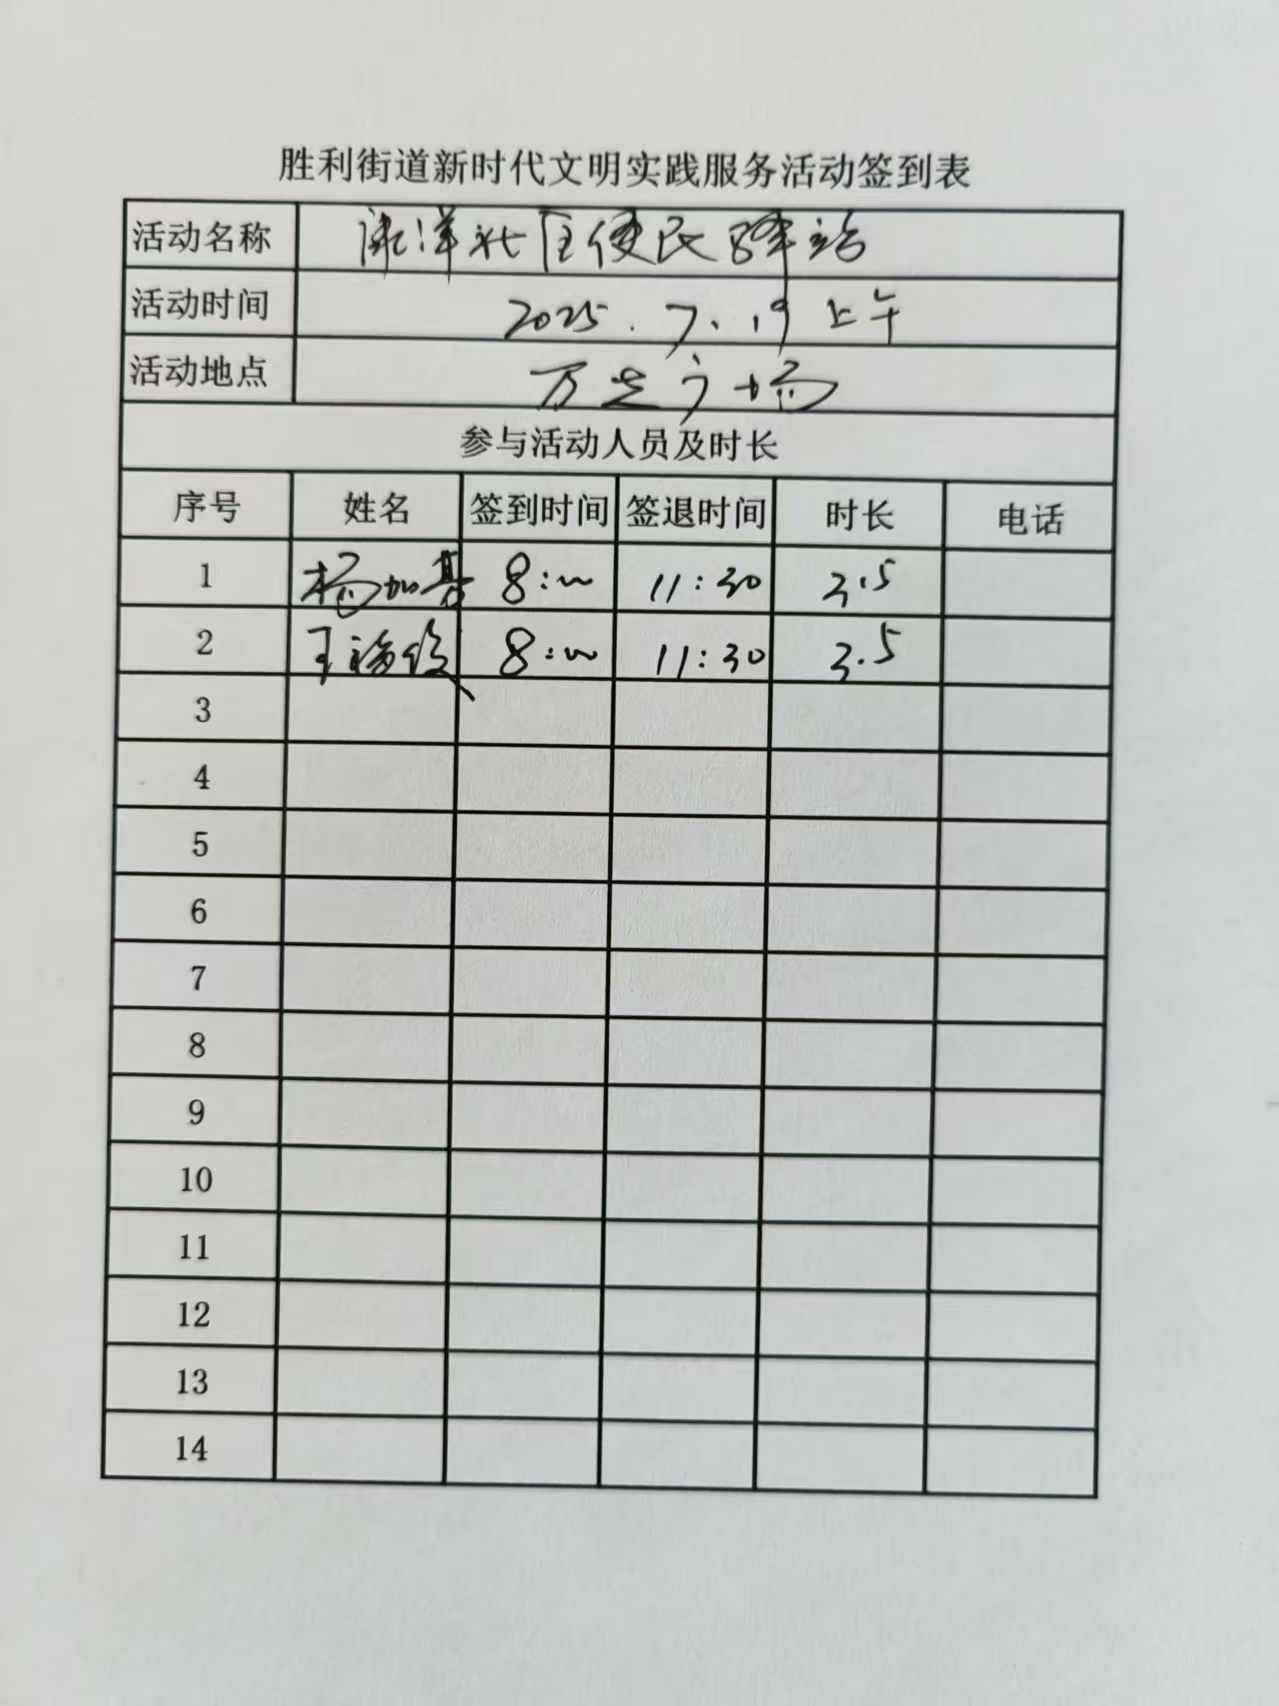 胜利街道新时代文明实践服务活动签到表
活动名称 社区便民驿站
活动时间 2025.7.19 上午
活动地点 万达广场
参与活动人员及时长
序号 姓名 签到时间 签退时间 时长 电话
1 杨加 8:00 11:30 3.5
2 王福俊 8:00 11:30 3.5
3
4
5
6
7
8
9
10
11
12
13
14